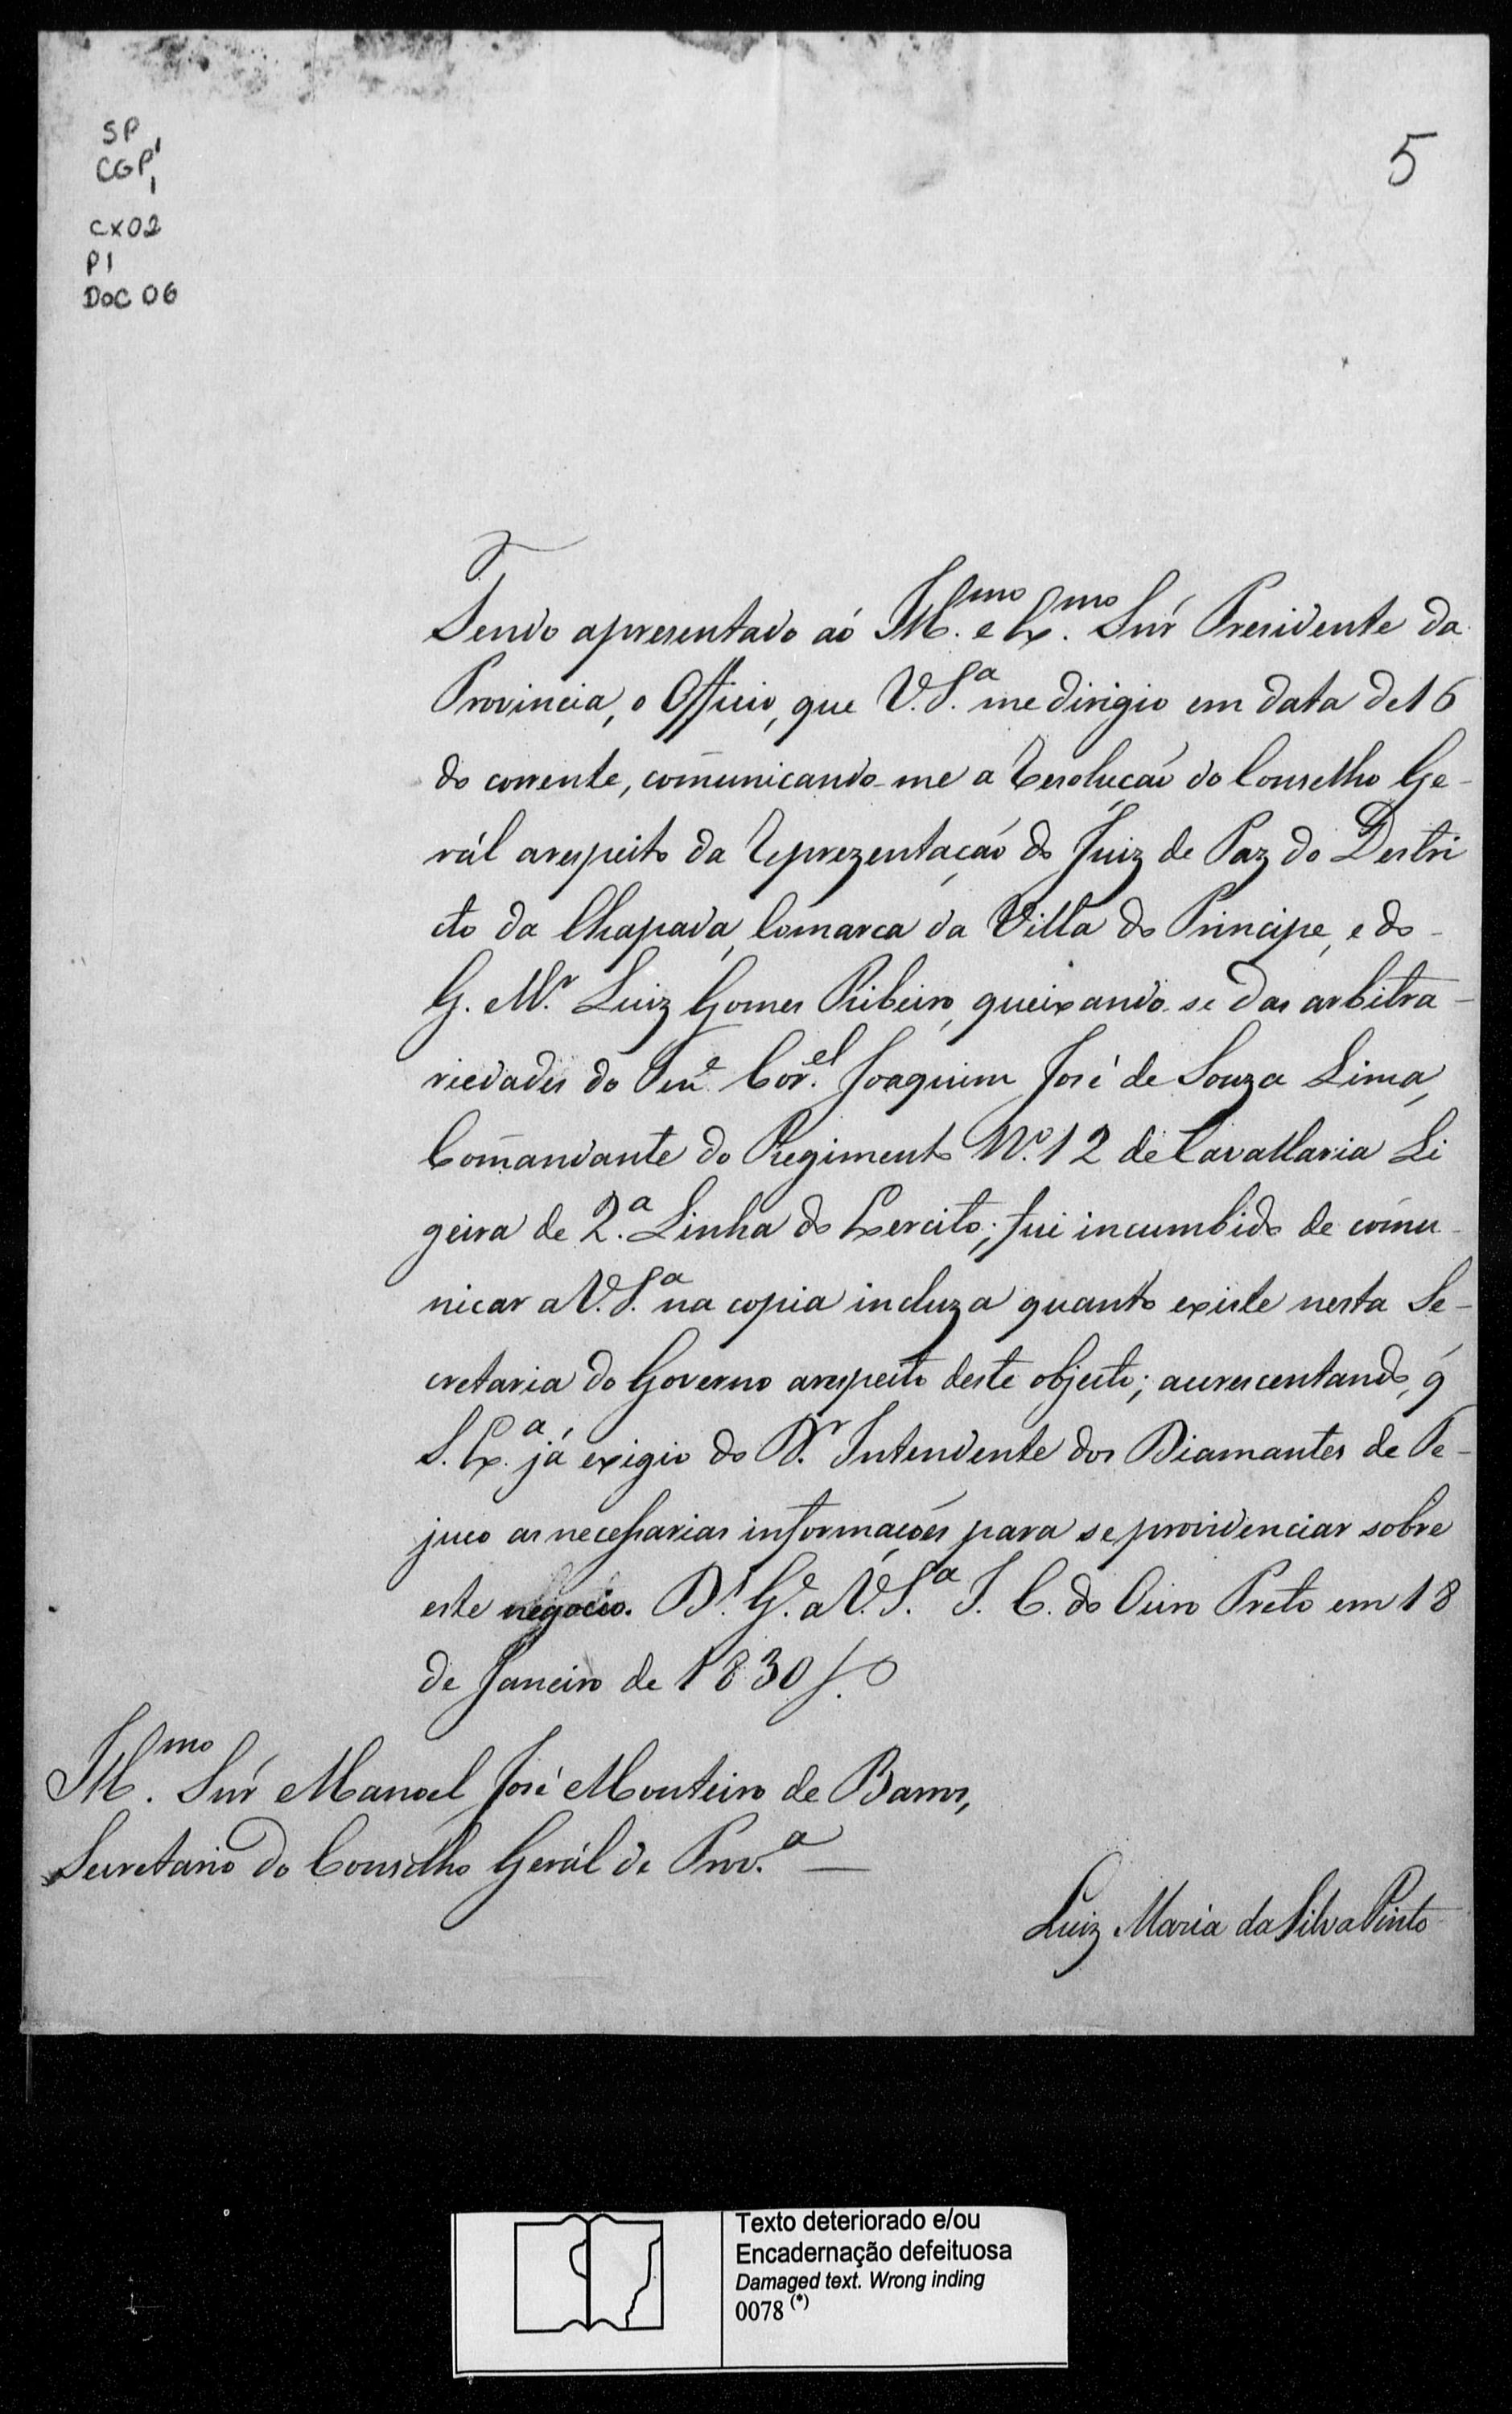 SP
CGP1
1
CX02
P1
DOC 06
5
Sendo apresentado aó Ill.mo e Ex.mo Snr̃ Presidente da
Provincia, o Officio, que V. S.a me dirigio em data de 16
do corrente, com̃unicando-me a Resolução do Conselho Ge-
rál arespeito da Reprezentação do Juiz de Paz do Destri
cto da Chapada, Comarca da Villa do Principe, e do
G. M.r Luiz Gomes Ribeiro, queixando-se das arbitra-
riedades do Ten.e Cor.el Joaquim José de Souza Lima,
Com̃andante do Regimento N.o 12 de Cavallaria Li
geira de 2.a Linha do Exercito; fui incumbido de com̃u-
nicar a V. S.a na copia incluza quanto existe nesta Se-
cretaria do Governo arespeito deste objecto; accrescentando, q̃
S. Ex.a já exigio do D.r Intendente dos Diamantes de Te-
juco as necessarias informações para se providenciar sobre
este negocio. D.s G.e a V. S.a I. C. do Ouro Preto em 18
de Janeiro de 1830
Ill.mo Snr̃ Manoel José Monteiro de Barros,
Secretario do Conselho Gerál de Prov.a —
Luiz Maria da Silva Pinto
Texto deteriorado e/ou
Encadernação defeituosa
Damaged text. Wrong inding
0078 (*)